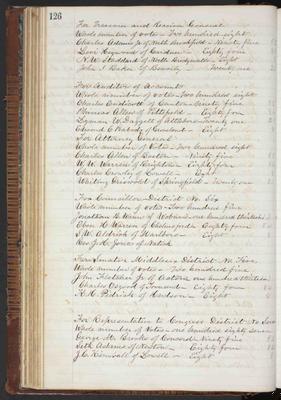 126
For Treasurer and Receiver General
Whole number of votes - Two hundred eight
Charles Adams Jr of North Brookfield - Ninety five
Levi Heywood of Gardner - Eighty four
N. W. Stoddard of North Bridgewater - Eight
John I Baker of Beverly - Twenty one
For Auditor of Accounts
Whole number of votes - Two hundred eight
Charles Endicott of Canton - Ninety five
Phineas Allen of Pittsfield - Eighty four
Lyman W. Daggett of Attleboro - Twenty one
Edmond C Peabody of - Eight
For Attorney General
Whole number of Votes - Two hundred eight
Charles Allen of Boston - Ninety five
W. W. Warren of Brighton - Eighty four
Charles Cowley of Lowell - Eight
Whiting Griswold of Springfield - Twenty one
For Councillor District No. Six
Whole number of votes - Two hundred five
Jonathan B. Winn of Woburn - one hundred thirteen
Eben H. Warren of Chelmsford - Eighty four
S. N. Aldrich of Marlboro - Eight
Rev J. H. Jones of Natick
For Senator Middlesex District No. Five
Whole number of votes - Two hundred five
John Fletcher Jr of Acton - one hundred thirteen
Charles Osgood of - Eighty four
H. H. Pedrick of Hudson - Eight
For Representative to Congress District No Seven
Whole number of Votes - one hundred eighty seven
George M. Brooks of Concord - Ninety five
Seth Ackens of Weston - Eighty four
J. C. Kimball of Lowell - Eight